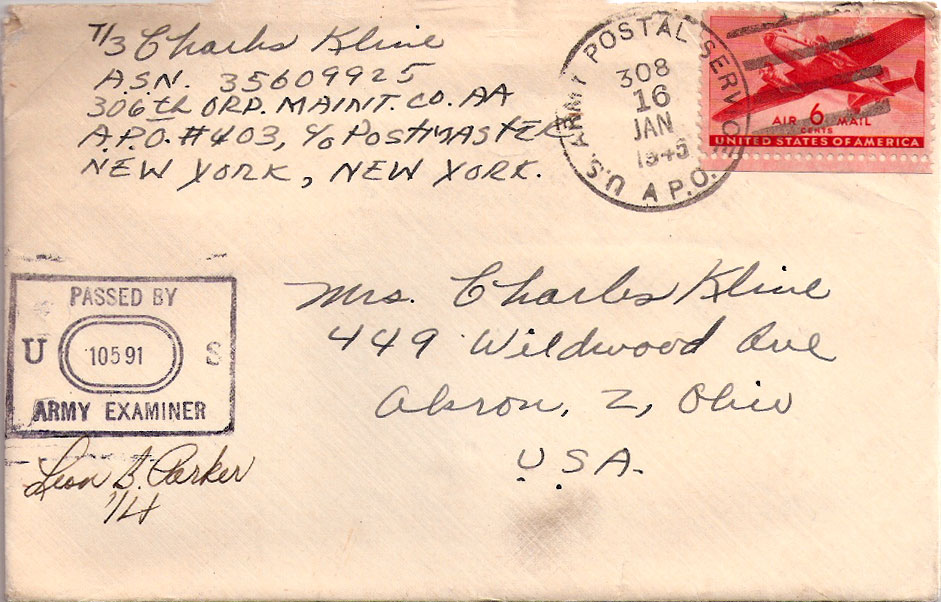 T/3 Charles Kline
A.S.N. 35609925
306th ORD. MAINT. CO. AA
A.P.O. #403, c/o POSTMASTER
NEW YORK, NEW YORK.
U.S. ARMY POSTAL SERVICE
308
16
JAN
1945
A.P.O.
AIR 6 MAIL
CENTS
UNITED STATES OF AMERICA
PASSED BY
U 10591 S
ARMY EXAMINER
Leon B. Parker
Mrs. Charles Kline
449 Wildwood Ave
Akron, 2, Ohio
U.S.A.